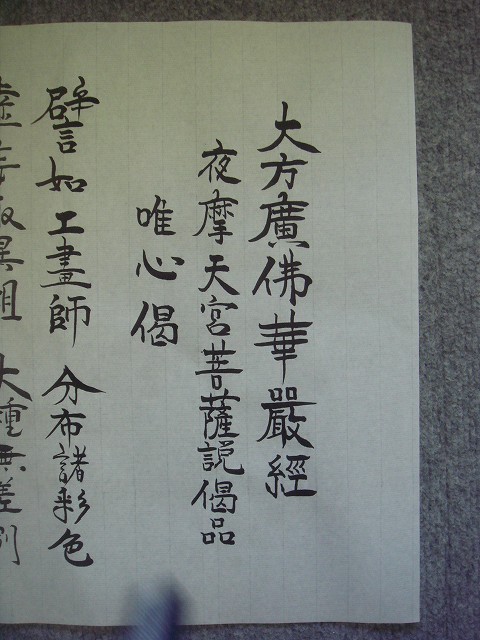 大方廣佛華嚴經
夜摩天宮菩薩説偈品
唯心偈
譬如工畫師 分布諸彩色
虚妄取異相 大種無差別